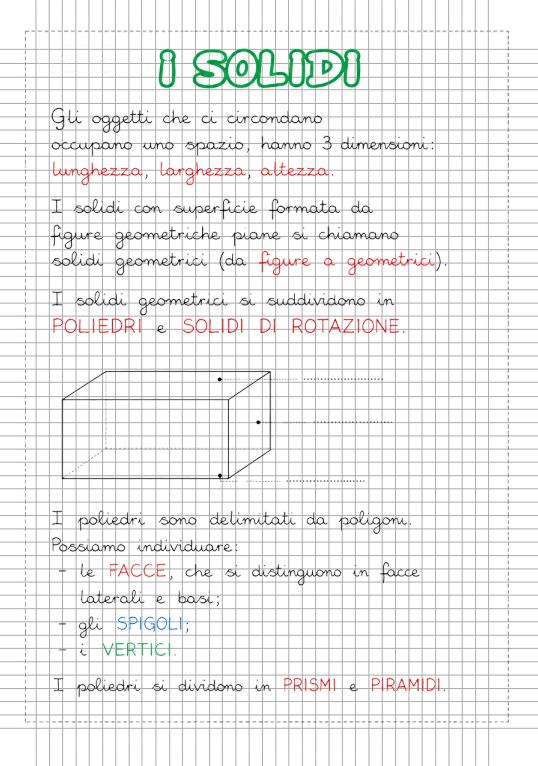 I SOLIDI
Gli oggetti che ci circondano
occupano uno spazio, hanno 3 dimensioni:
lunghezza, larghezza, altezza.
I solidi con superficie formata da
figure geometriche piane si chiamano
solidi geometrici (da figure a geometrici).
I solidi geometrici si suddividono in
POLIEDRI e SOLIDI DI ROTAZIONE.
I poliedri sono delimitati da poligoni.
Possiamo individuare:
- le FACCE, che si distinguono in facce
laterali e basi;
- gli SPIGOLI;
- i VERTICI.
I poliedri si dividono in PRISMI e PIRAMIDI.